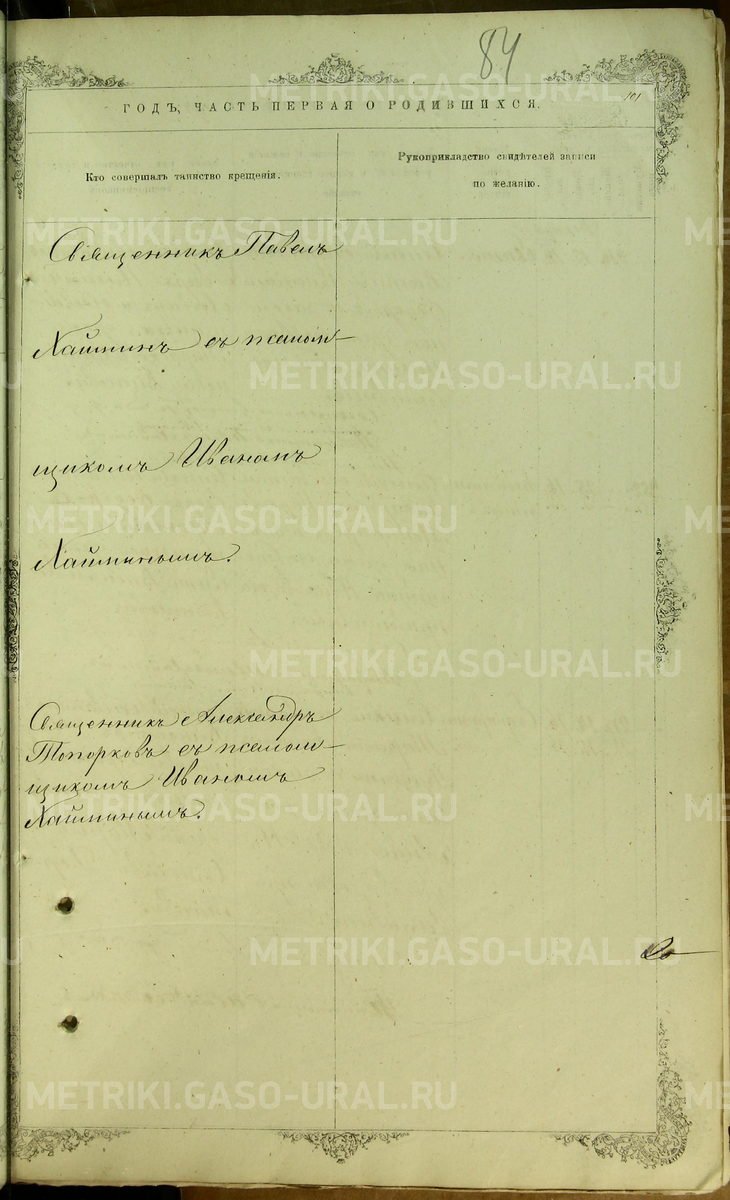 84
101
ГОДЪ, ЧАСТЬ ПЕРВАЯ О РОДИВШИХСЯ.
Кто совершалъ таинство крещенія.
Рукоприкладство свидѣтелей записи
по желанію.
Священникъ Павелъ
Хайминъ съ псалом-
щикомъ Иваномъ
Хайминымъ.
Священникъ Александръ
Топорковъ съ псалом-
щикомъ Иваномъ
Хайминымъ.
METRIKI.GASO-URAL.RU